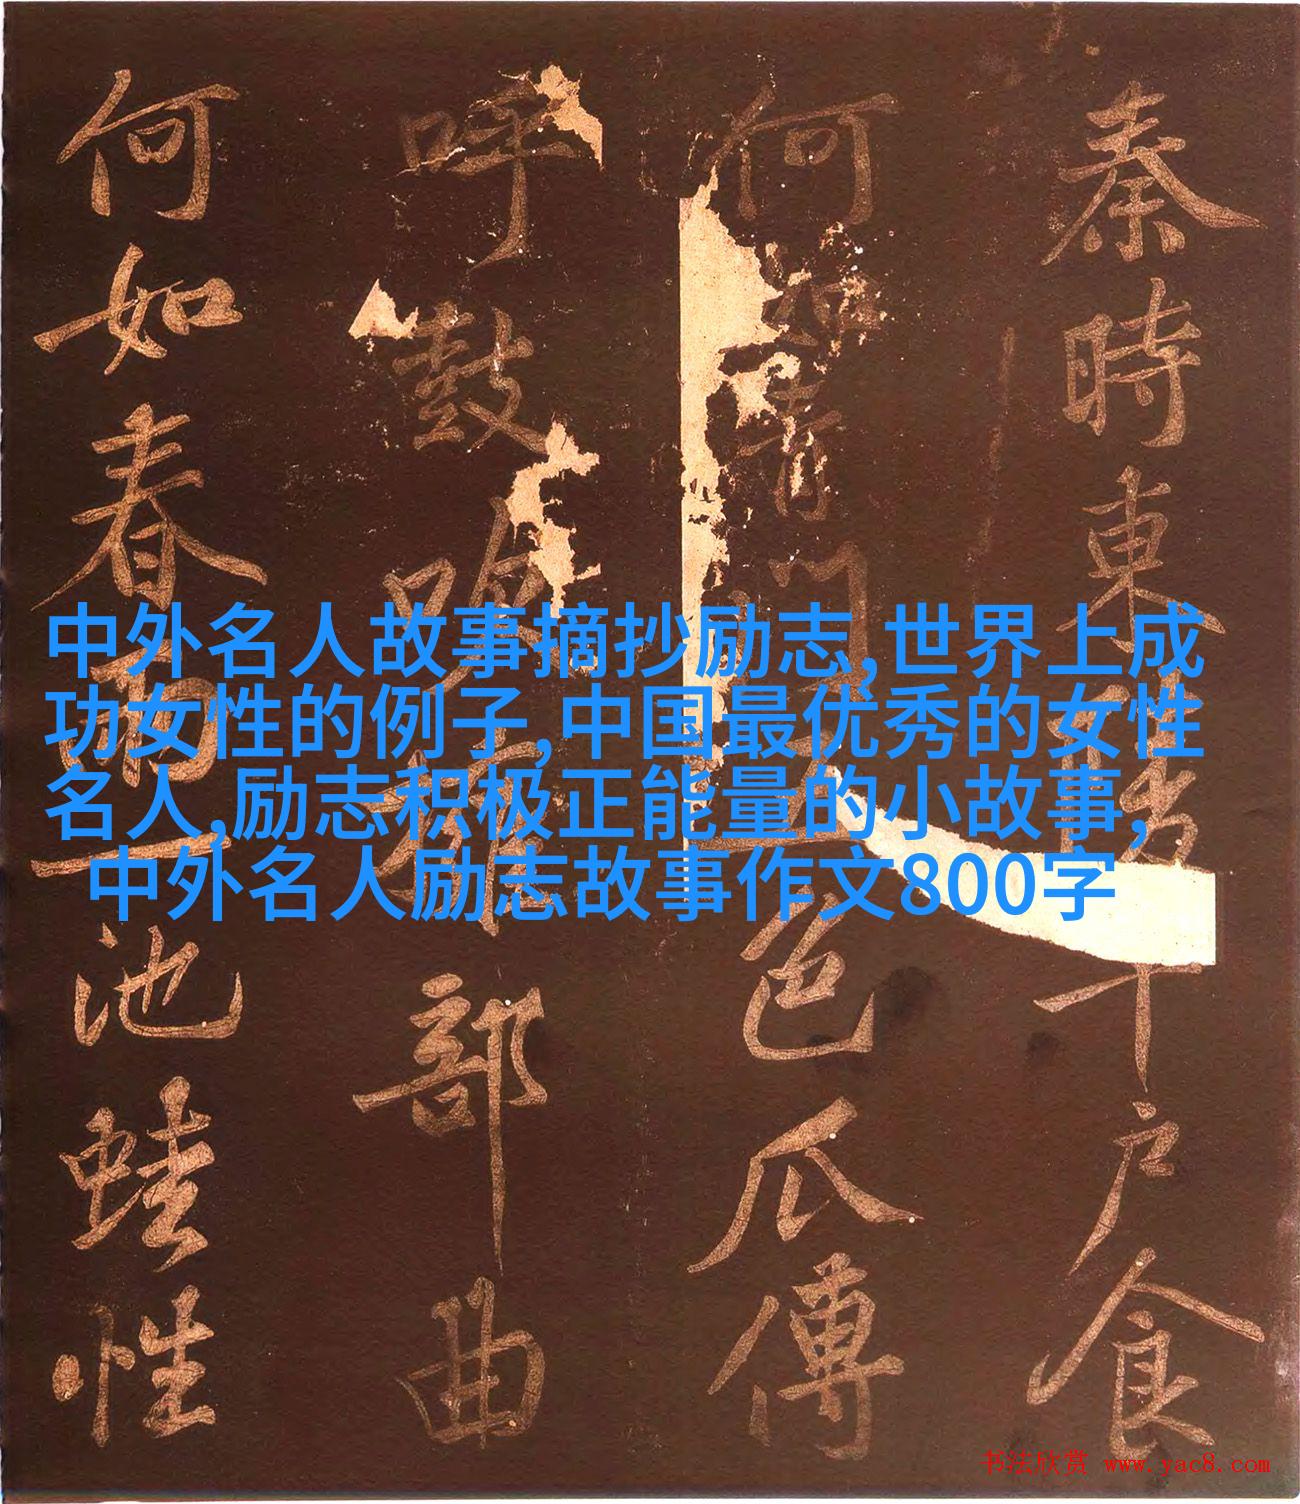 秦時東陵千戶食
何如青門五色瓜傳
呼鼓吹擁部曲
何如春雨一池蛙性
中外名人故事摘抄励志,世界上成
功女性的例子,中国最优秀的女性
名人,励志积极正能量的小故事,
中外名人励志故事作文800字
书法欣赏 www.yac8.com